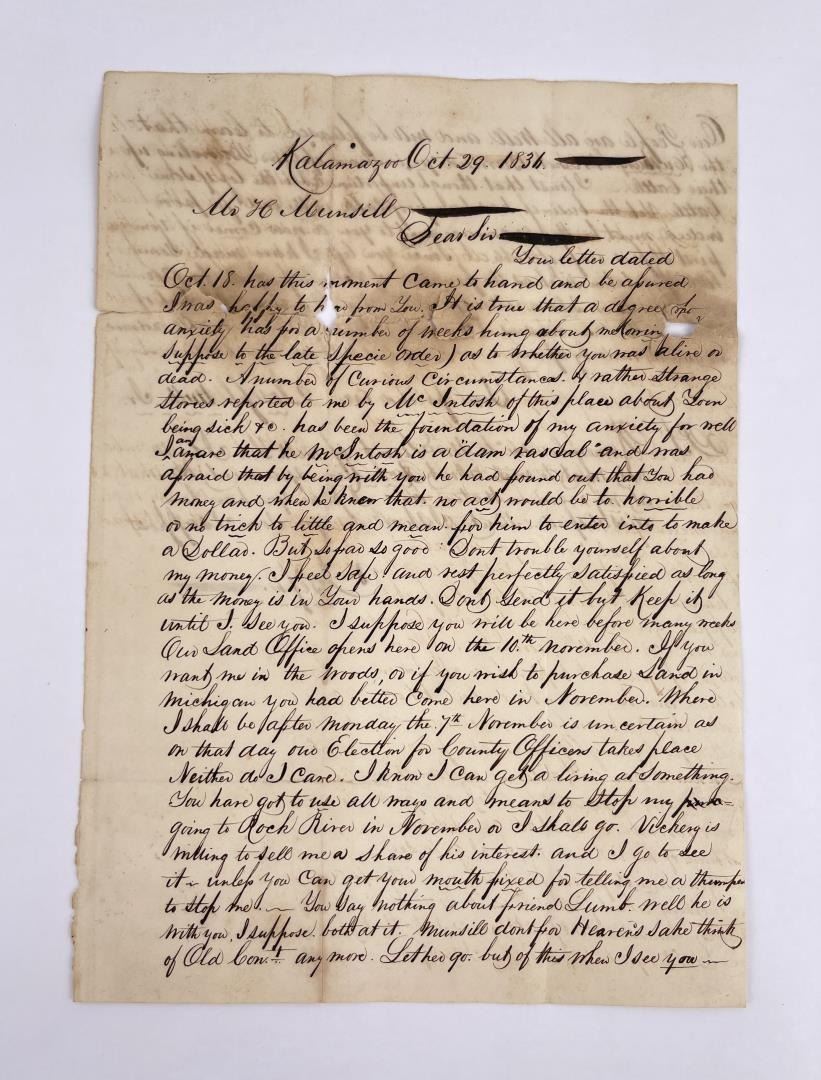 Kalamazoo Oct. 29. 1836.
Mr H Munsill
Dear Sir
Your letter dated
Oct. 18. has this moment came to hand and be asured
I was happy to from You. It is true that a degree
anxiety has for a number of weeks hung about me (owing
suppose to the late specie order) as to whether you was alive or
dead. A number of Curious Circumstances. & rather strange
stories reported to me by Mc Intosh of this place about Your
being sick &c. has been the foundation of my anxiety for well
I am aware that he McIntosh is a "dam rascal" and was
afraid that by being with you he had found out that You had
money and when he knew that no act would be to horrible
or no trick to little and mean for him to enter into to make
a Dollar. But so far so good. Dont trouble yourself about
my money. I feel safe and rest perfectly satisfied as long
as the money is in Your hands. Dont send it but Keep it
until I see you. I suppose you will be here before many weeks
Our Land Office opens here on the 10th november. If you
want me in the woods, or if you wish to purchase Land in
Michigan you had better come here in November. Where
I shall be after monday the 7th November is uncertain as
on that day our Election for County Officers takes place
Neither do I care. I know I can get a living at something.
You have got to use all ways and means to stop my
going to Rock River in November or I shall go. Vickery is
willing to sell me a share of his interest. and I go to see
it - unless you can get your mouth fixed for telling me a thumper
to stop me. - You say nothing about friend Lumb. well he is
with you, I suppose. both at it. Munsill dont for Heaven's sake think
of Old Con.t any more. Let her go. but of this when I see you -